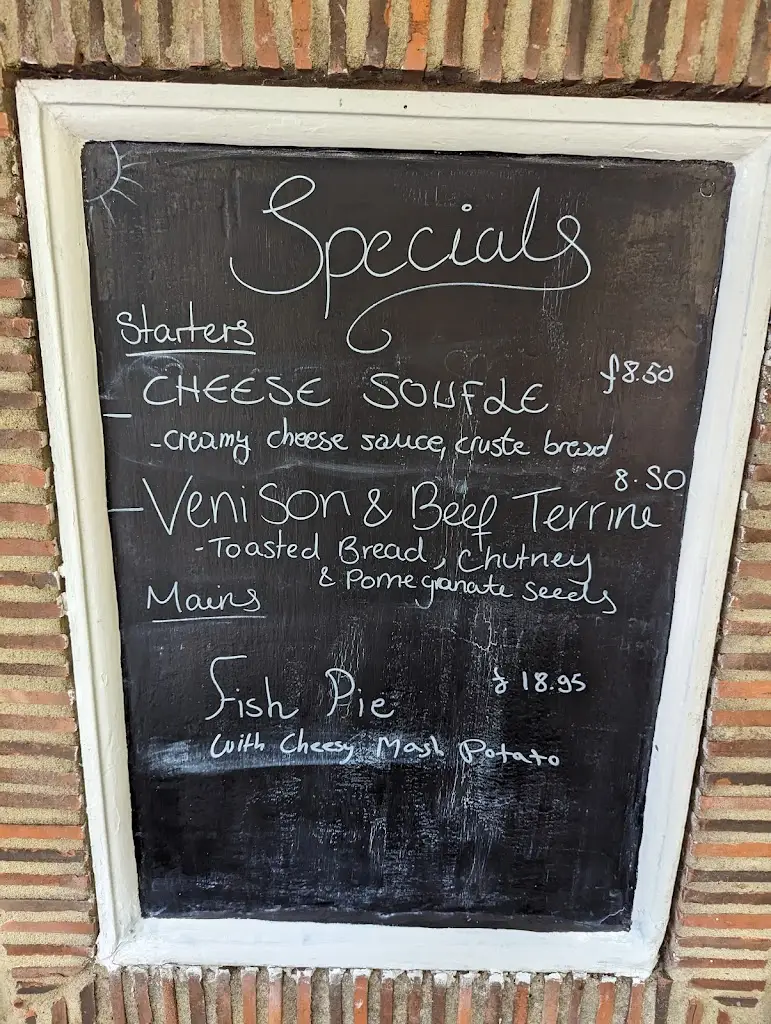 Specials
Starters
- CHEESE SOUFLE £8.50
-creamy cheese sauce, cruste bread
- Venison & Beef Terrine 8.50
-Toasted Bread, Chutney
& Pomegranate Seeds
Mains
Fish Pie £18.95
with Cheesy Mash Potato